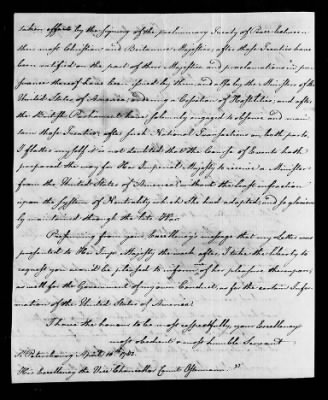 taken effect by the signing of the preliminary Treaty of Peace between
their most Christian and Britannic Majesties, after those Treaties have
been ratified on the part of their Majesties and proclamations in pur-
suance thereof have been issued by them, and also by the Ministers of the
United States of America, ordering a Cessation of Hostilities; and after
the British Parliament have solemnly engaged to observe and main-
tain those Treaties; after such National Transactions on both parts,
I flatter myself it is not doubted that the Course of Events hath
prepared the way for Her Imperial Majesty to receive a Minister
from the United States of America, without the least infraction
upon the System of Neutrality which She had adopted, and so gloriously
maintained through the late War.
Presuming from your Excellency's message that my Letter was
presented to Her Impl Majesty the week after, I take the liberty to
request you would be pleased to inform of her pleasure thereupon,
as well for the Government of my own Conduct, as for the certain Infor-
mation of the United States of America.
I have the honour to be most respectfully, your Excellency's
most obedient & most humble Servant
St. Petersbourg April 10th 1783.
His Excellency the Vice Chancellor Count Ostermann."